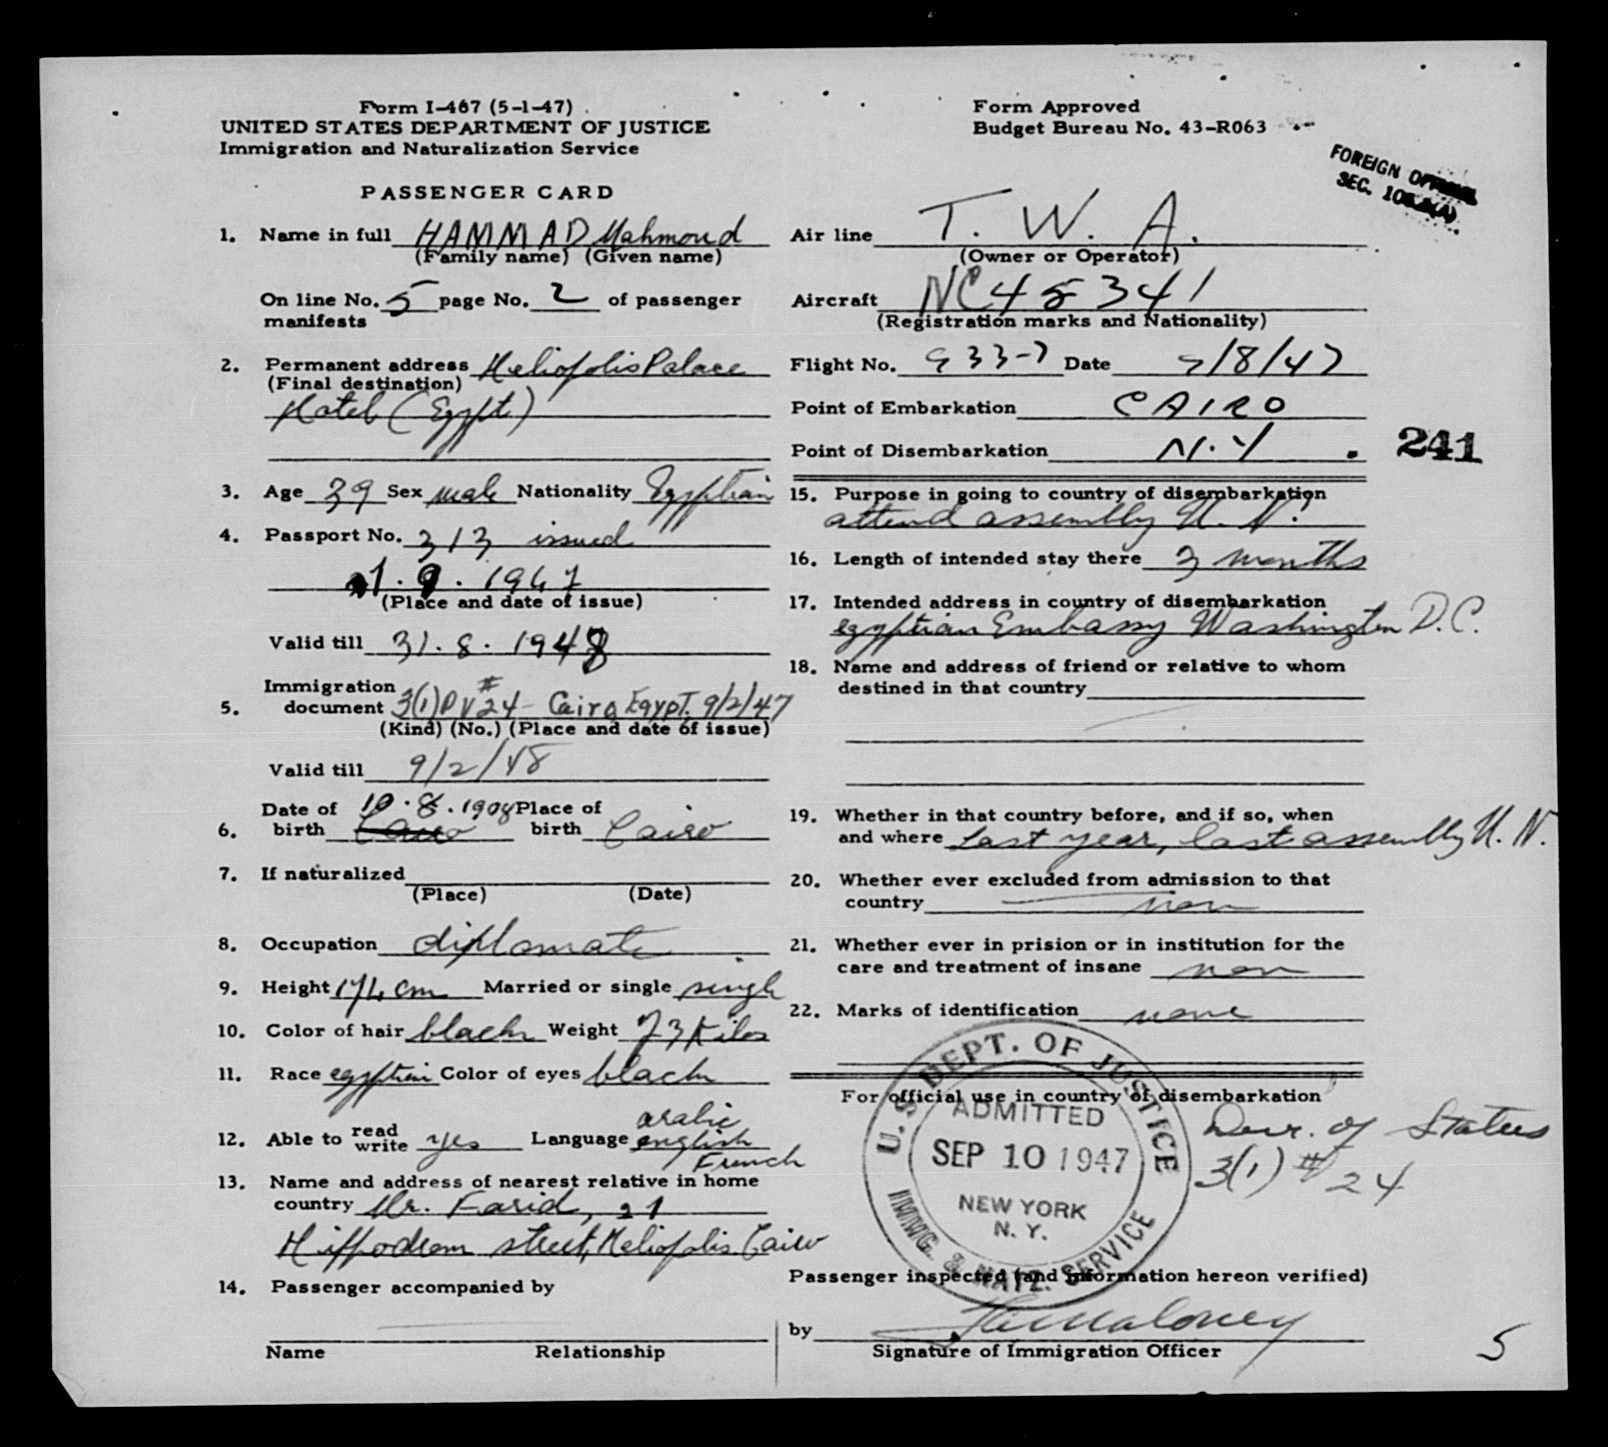 Form I-467 (5-1-47)
UNITED STATES DEPARTMENT OF JUSTICE
Immigration and Naturalization Service
PASSENGER CARD
Form Approved
Budget Bureau No. 43-R063
FOREIGN
SEC.
1. Name in full HAMMAD Mahmoud
(Family name) (Given name)
On line No. 5 page No. 2 of passenger
manifests
2. Permanent address Heliopolis Palace
(Final destination)
Hotel (Egypt)
3. Age 39 Sex male Nationality Egyptian
4. Passport No. 313 issued
1.9.1947
(Place and date of issue)
Valid till 31.8.1948
Immigration
5. document 3(1) PV #24 - Cairo Egypt. 9/2/47
(Kind) (No.) (Place and date of issue)
Valid till 9/2/48
Date of 10.8.1908 Place of
6. birth Cairo birth Cairo
7. If naturalized
(Place) (Date)
8. Occupation diplomate
9. Height 174 cm Married or single single
10. Color of hair black Weight 73 Kilos
11. Race egyptian Color of eyes black
arabic
12. Able to read write yes Language english
French
13. Name and address of nearest relative in home
country Mr. Farid, 21
Hippodrom street, Heliopolis Cairo
14. Passenger accompanied by
Name Relationship
Air line T. W. A.
(Owner or Operator)
Aircraft NC 45341
(Registration marks and Nationality)
Flight No. 933-7 Date 9/8/47
Point of Embarkation CAIRO
Point of Disembarkation N.Y.
241
15. Purpose in going to country of disembarkation
attend assembly U. N.
16. Length of intended stay there 3 months
17. Intended address in country of disembarkation
egyptian Embassy Washington D.C.
18. Name and address of friend or relative to whom
destined in that country
19. Whether in that country before, and if so, when
and where last year, last assembly U. N.
20. Whether ever excluded from admission to that
country non
21. Whether ever in prision or in institution for the
care and treatment of insane non
22. Marks of identification none
For official use in country of disembarkation
U.S. DEPT. OF JUSTICE
ADMITTED
SEP 10 1947
NEW YORK
N. Y.
IMMIG. & NATZ. SERVICE
Dur. of Status
3(1) # 24
Passenger inspected (and information hereon verified)
by Maloney
Signature of Immigration Officer
5